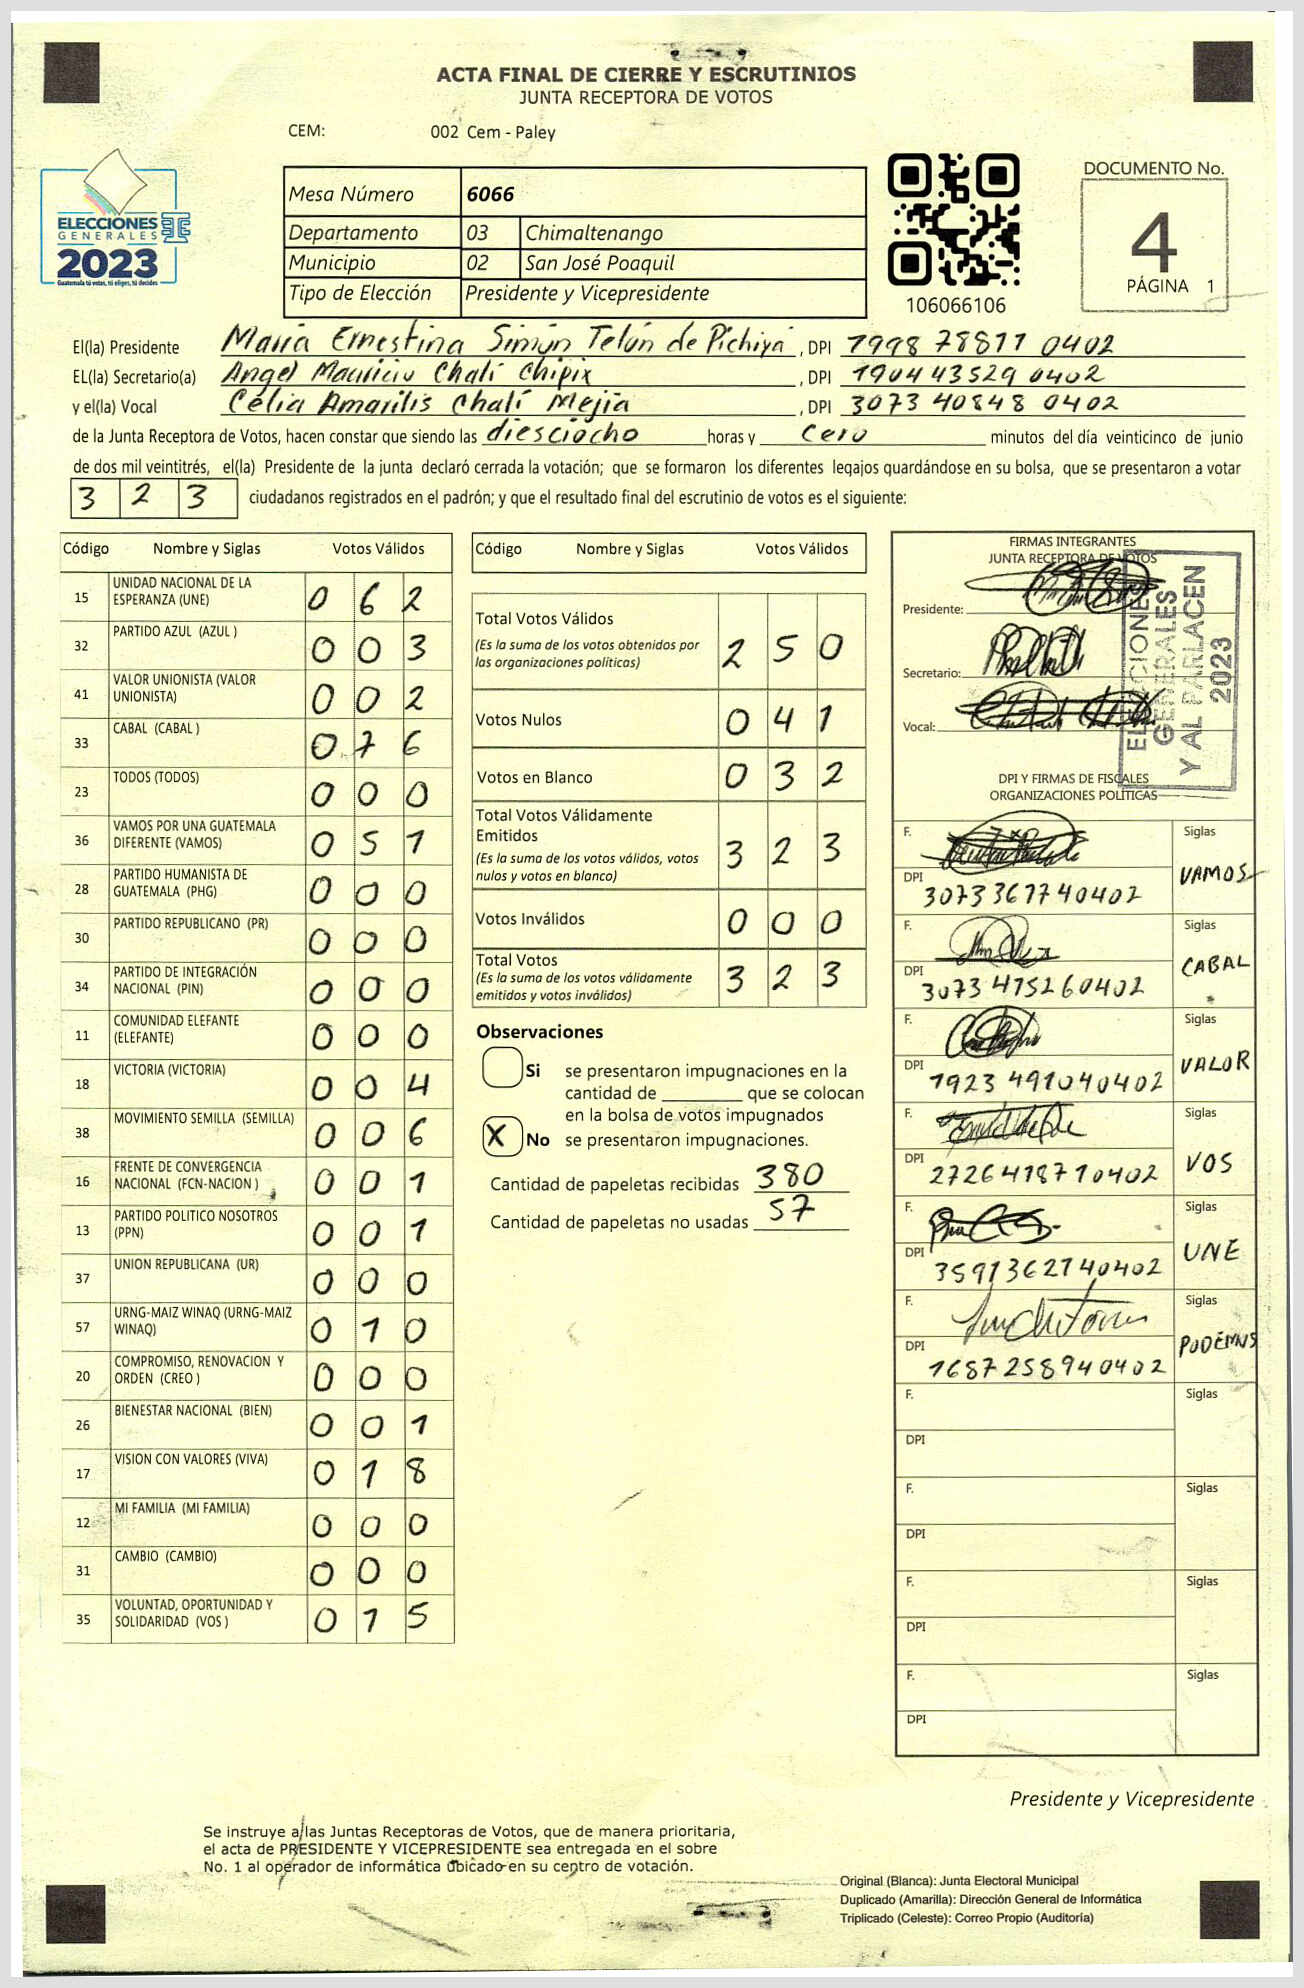 ACTA FINAL DE CIERRE Y ESCRUTINIOS
JUNTA RECEPTORA DE VOTOS
CEM: 002 Cem - Paley
ELECCIONES
GENERALES
2023
Guatemala tú votas, tú eliges, tú decides
Mesa Número 6066
Departamento 03 Chimaltenango
Municipio 02 San José Poaquil
Tipo de Elección Presidente y Vicepresidente
106066106
DOCUMENTO No.
4
PÁGINA 1
El(la) Presidente María Ernestina Simón Telón de Pichiyá , DPI 1998 78811 0402
EL(la) Secretario(a) Angel Mauricio Chalí Chipix , DPI 190443529 0402
y el(la) Vocal Celia Amarilis Chalí Mejía , DPI 3073 40848 0402
de la Junta Receptora de Votos, hacen constar que siendo las diesciocho horas y cero minutos del día veinticinco de junio
de dos mil veintitrés, el(la) Presidente de la junta declaró cerrada la votación; que se formaron los diferentes legajos quardándose en su bolsa, que se presentaron a votar
3 2 3 ciudadanos registrados en el padrón; y que el resultado final del escrutinio de votos es el siguiente:
Código Nombre y Siglas Votos Válidos
15 UNIDAD NACIONAL DE LA ESPERANZA (UNE) 0 6 2
32 PARTIDO AZUL (AZUL ) 0 0 3
41 VALOR UNIONISTA (VALOR UNIONISTA) 0 0 2
33 CABAL (CABAL ) 0 7 6
23 TODOS (TODOS) 0 0 0
36 VAMOS POR UNA GUATEMALA DIFERENTE (VAMOS) 0 5 1
28 PARTIDO HUMANISTA DE GUATEMALA (PHG) 0 0 0
30 PARTIDO REPUBLICANO (PR) 0 0 0
34 PARTIDO DE INTEGRACIÓN NACIONAL (PIN) 0 0 0
11 COMUNIDAD ELEFANTE (ELEFANTE) 0 0 0
18 VICTORIA (VICTORIA) 0 0 4
38 MOVIMIENTO SEMILLA (SEMILLA) 0 0 6
16 FRENTE DE CONVERGENCIA NACIONAL (FCN-NACION ) 0 0 1
13 PARTIDO POLITICO NOSOTROS (PPN) 0 0 1
37 UNION REPUBLICANA (UR) 0 0 0
57 URNG-MAIZ WINAQ (URNG-MAIZ WINAQ) 0 1 0
20 COMPROMISO, RENOVACION Y ORDEN (CREO ) 0 0 0
26 BIENESTAR NACIONAL (BIEN) 0 0 1
17 VISION CON VALORES (VIVA) 0 1 8
12 MI FAMILIA (MI FAMILIA) 0 0 0
31 CAMBIO (CAMBIO) 0 0 0
35 VOLUNTAD, OPORTUNIDAD Y SOLIDARIDAD (VOS ) 0 1 5
Código Nombre y Siglas Votos Válidos
Total Votos Válidos 2 5 0
(Es la suma de los votos obtenidos por
las organizaciones políticas)
Votos Nulos 0 4 1
Votos en Blanco 0 3 2
Total Votos Válidamente
Emitidos 3 2 3
(Es la suma de los votos válidos, votos
nulos y votos en blanco)
Votos Inválidos 0 0 0
Total Votos 3 2 3
(Es la suma de los votos válidamente
emitidos y votos inválidos)
Observaciones
Si se presentaron impugnaciones en la
cantidad de ________ que se colocan
en la bolsa de votos impugnados
X No se presentaron impugnaciones.
Cantidad de papeletas recibidas 380
Cantidad de papeletas no usadas 57
FIRMAS INTEGRANTES
JUNTA RECEPTORA DE VOTOS
Presidente:
Secretario:
Vocal:
ELECCIONES
GENERALES
Y AL PARLACEN
2023
DPI Y FIRMAS DE FISCALES
ORGANIZACIONES POLÍTICAS
F. Siglas VAMOS
DPI 3073367740402
F. Siglas CABAL
DPI 3073475260402
F. Siglas VALOR
DPI 1923491040402
F. Siglas VOS
DPI 2726418710402
F. Siglas UNE
DPI 3591362740402
F. Siglas PODEMOS
DPI 1687258940402
F. Siglas
DPI
F. Siglas
DPI
F. Siglas
DPI
F. Siglas
DPI
Presidente y Vicepresidente
Se instruye a las Juntas Receptoras de Votos, que de manera prioritaria,
el acta de PRESIDENTE Y VICEPRESIDENTE sea entregada en el sobre
No. 1 al operador de informática ubicado en su centro de votación.
Original (Blanca): Junta Electoral Municipal
Duplicado (Amarilla): Dirección General de Informática
Triplicado (Celeste): Correo Propio (Auditoría)